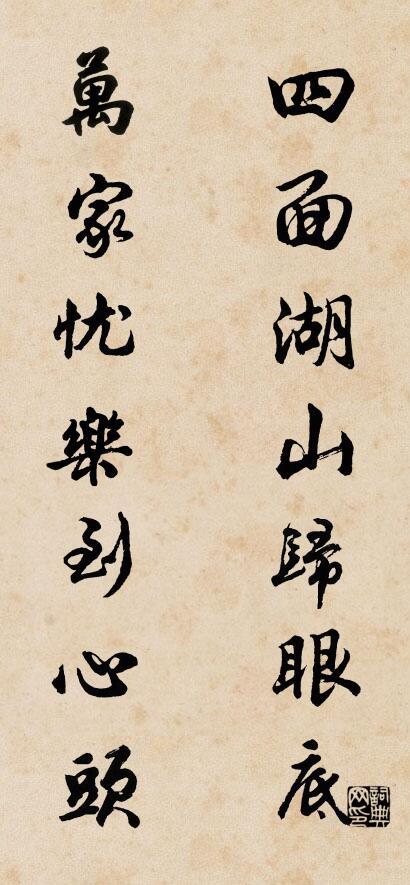 四面湖山歸眼底
萬家忧樂到心頭
詞典网印